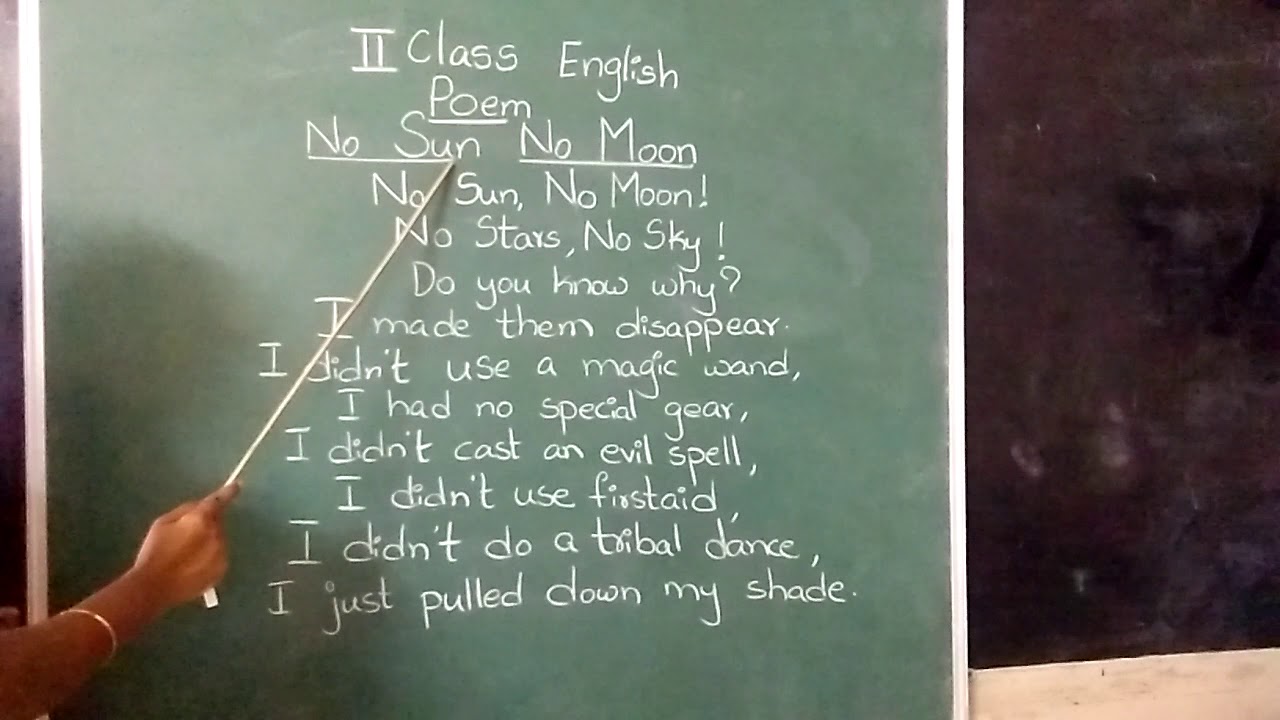 II Class English
Poem
No Sun No Moon
No Sun, No Moon!
No Stars, No Sky!
Do you know why?
I made them disappear.
I didn't use a magic wand,
I had no special gear,
I didn't cast an evil spell,
I didn't use firstaid,
I didn't do a tribal dance,
I just pulled down my shade.